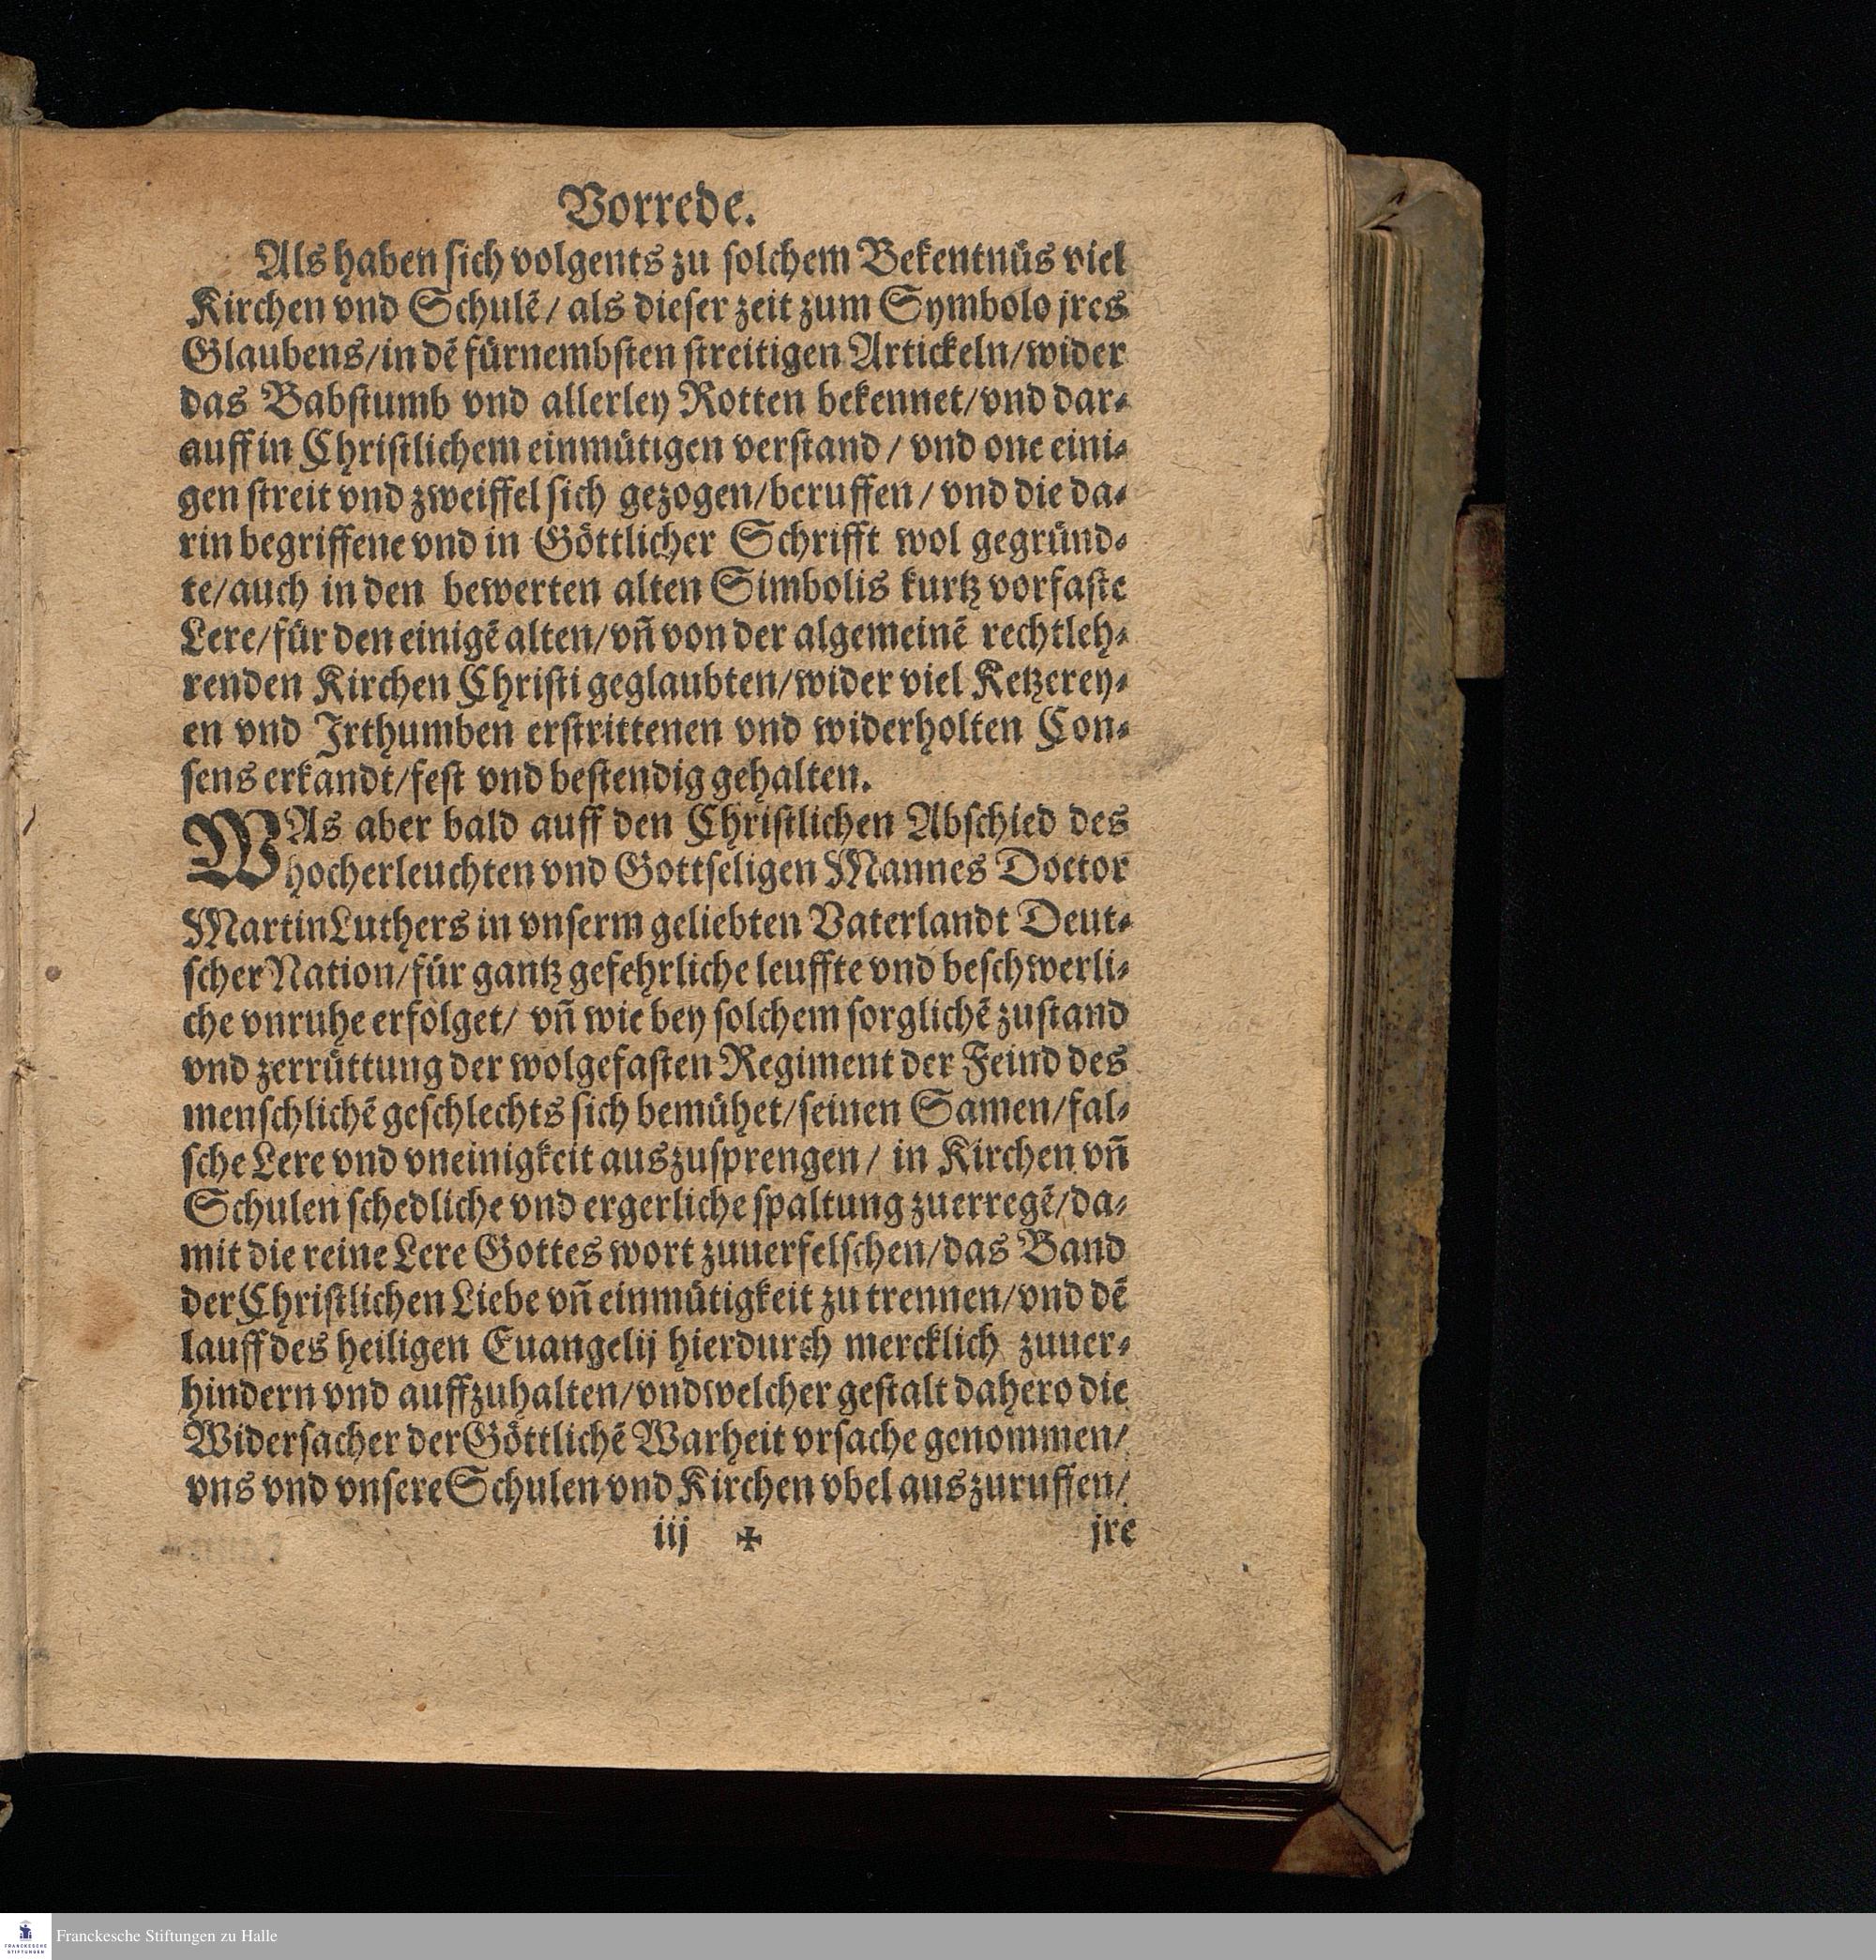 Vorrede.
Als haben sich volgents zu solchem Bekentnüs viel
Kirchen vnd Schulē / als dieser zeit zum Symbolo jres
Glaubens/in dē fürnembsten streitigen Artickeln/wider
das Babstumb vnd allerley Rotten bekennet/vnd dar⸗
auff in Christlichem einmütigen verstand / vnd one eini⸗
gen streit vnd zweiffel sich gezogen/beruffen / vnd die da⸗
rin begriffene vnd in Göttlicher Schrifft wol gegründ⸗
te/auch in den bewerten alten Simbolis kurtz vorfaste
Lere/für den einigē alten/vn̄ von der algemeinē rechtleh⸗
renden Kirchen Christi geglaubten/wider viel Ketzerey⸗
en vnd Irthumben erstrittenen vnd widerholten Con⸗
sens erkandt/fest vnd bestendig gehalten.
WAs aber bald auff den Christlichen Abschied des
hocherleuchten vnd Gottseligen Mannes Doctor
Martin Luthers in vnserm geliebten Vaterlandt Deut⸗
scher Nation/für gantz gefehrliche leuffte vnd beschwerli⸗
che vnruhe erfolget/ vn̄ wie bey solchem sorglichē zustand
vnd zerrüttung der wolgefasten Regiment der Feind des
menschlichē geschlechts sich bemühet/seinen Samen/fal⸗
sche Lere vnd vneinigkeit auszusprengen / in Kirchen vn̄
Schulen schedliche vnd ergerliche spaltung zuerregē/da⸗
mit die reine Lere Gottes wort zuuerfelschen/das Band
der Christlichen Liebe vn̄ einmütigkeit zu trennen/vnd dē
lauff des heiligen Euangelij hierdurch mercklich zuuer⸗
hindern vnd auffzuhalten/vnd welcher gestalt dahero die
Widersacher der Göttlichē Warheit vrsache genommen/
vns vnd vnsere Schulen vnd Kirchen vbel auszuruffen/
iij ✠ jre
FRANCKESCHE STIFTUNGEN
Franckesche Stiftungen zu Halle